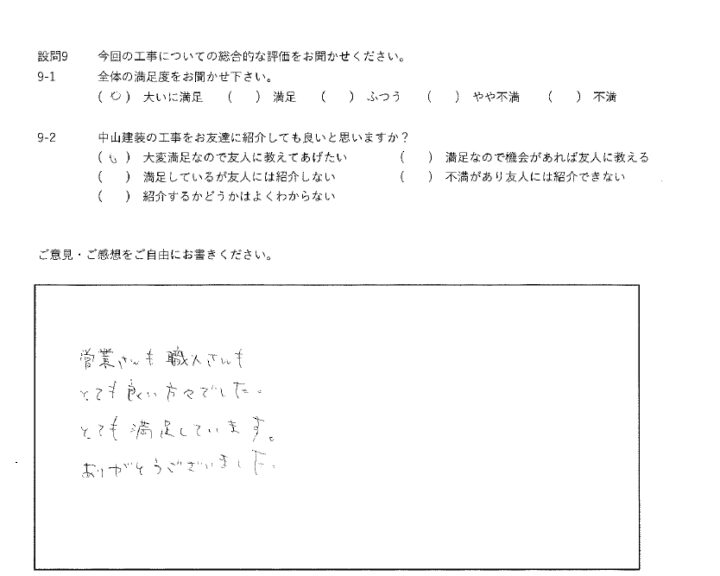 設問9 今回の工事についての総合的な評価をお聞かせください。
9-1 全体の満足度をお聞かせ下さい。
(○) 大いに満足 ( ) 満足 ( ) ふつう ( ) やや不満 ( ) 不満
9-2 中山建装の工事をお友達に紹介しても良いと思いますか？
(○) 大変満足なので友人に教えてあげたい ( ) 満足なので機会があれば友人に教える
( ) 満足しているが友人には紹介しない ( ) 不満があり友人には紹介できない
( ) 紹介するかどうかはよくわからない
ご意見・ご感想をご自由にお書きください。
営業さんも職人さんも
とても良い方々でした。
とても満足しています。
ありがとうございました。